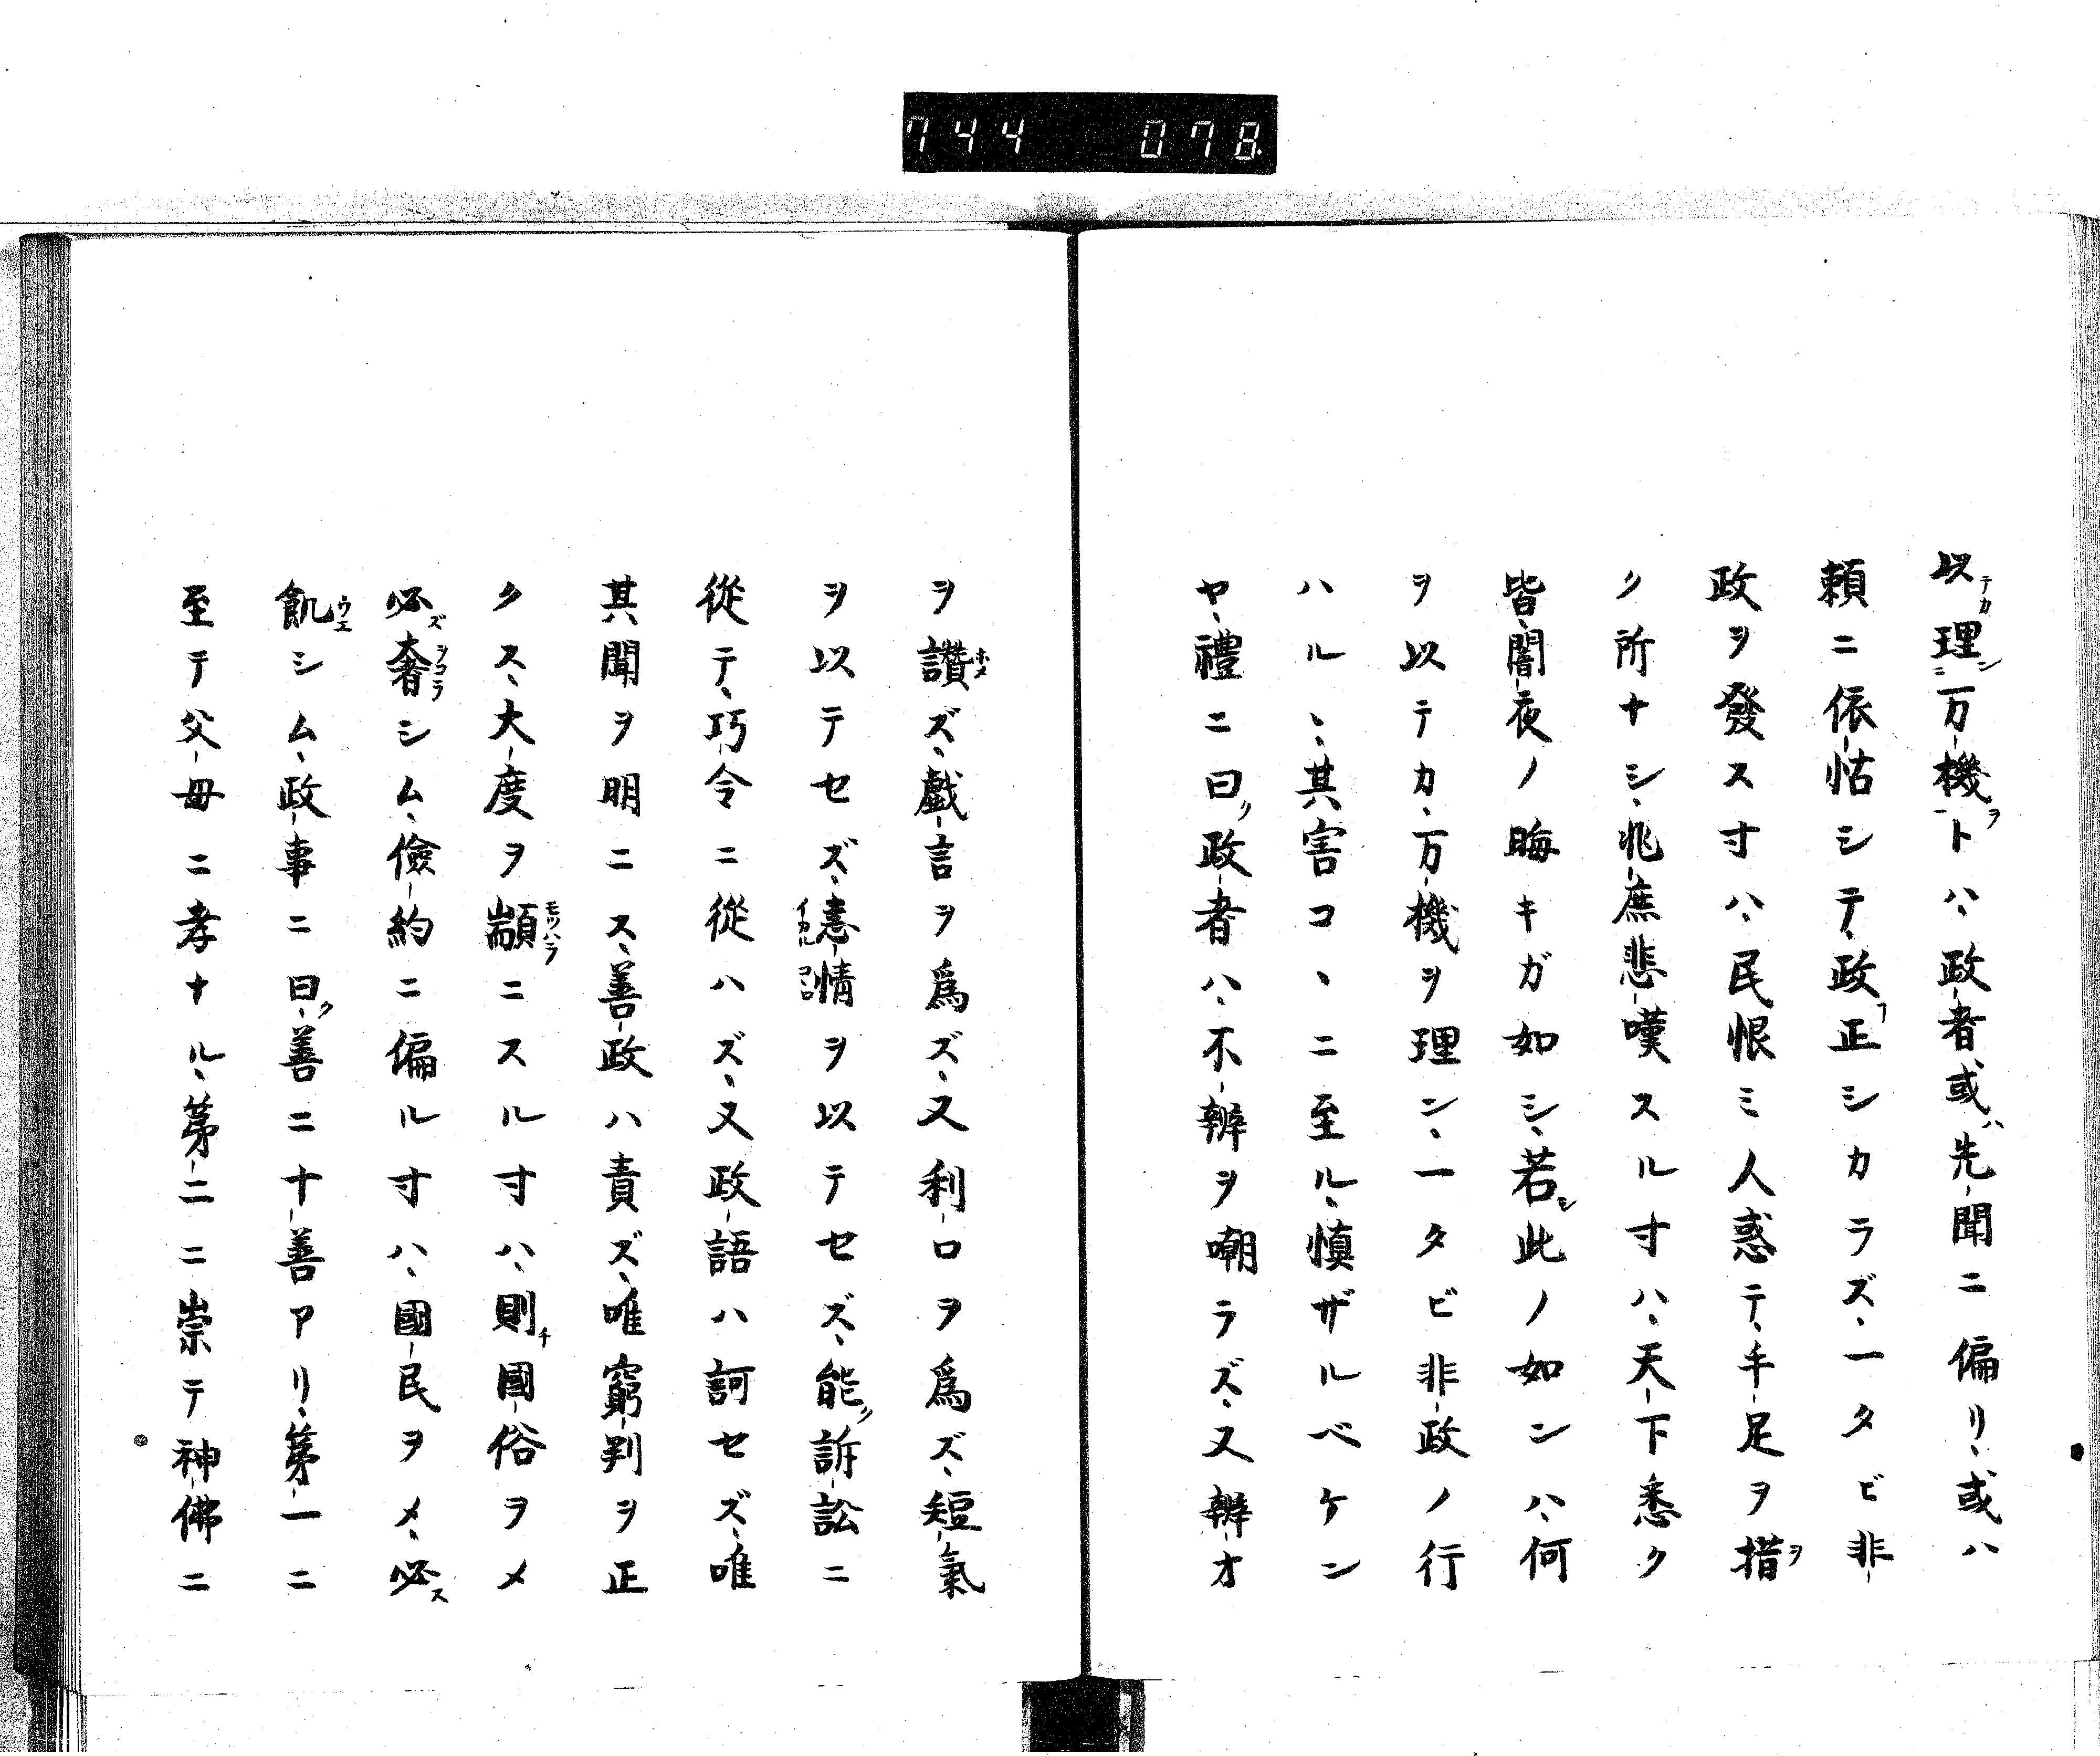 744 078
以テカ理シ二万機ヲ一トハ、政者或ハ先聞ニ偏リ、或ハ
頼ニ依怙シテ、政フ正シカラズ、一タビ非
政ヲ發ス寸ハ、民恨ミ人惑テ、手足ヲ措ヲ
ク所ナシ、兆庶悲嘆スル寸ハ、天下悉ク
皆、闇夜ノ晦キガ如シ、若シ此ノ如ンハ、何
ヲ以テカ、万機ヲ理ン、一タビ非政ノ行
ハルヽ、其害コヽニ至ル、慎ザルベケン
ヤ、禮ニ曰ク政者ハ、不辨ヲ嘲ラズ、又辨才
ヲ讚ホメズ、戯言ヲ爲ズ、又利口ヲ爲ズ、短氣
ヲ以テセズ、恚情ヲ以テセズ、能ク訴訟ニ
從テ、巧令ニ從ハズ、又政語ハ訶セズ、唯
其聞ヲ明ニス、善政ハ責ズ、唯窮判ヲ正
クス、大度ヲ顓モツハラニスル寸ハ、則チ國俗ヲメ
必ズ奢ヲコラシム、儉約ニ偏ル寸ハ、國民ヲメ、必ス
飢ウエシム、政事ニ曰ク、善ニ十善アリ、第一ニ
至テ父母ニ孝ナル、第二ニ崇テ神佛ニ